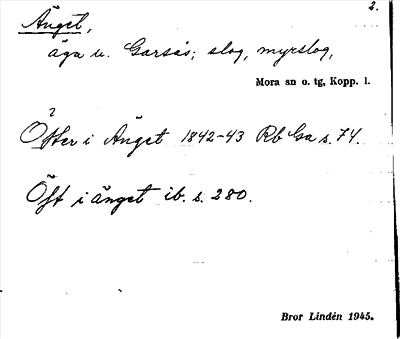 2.
Änget,
äga u. Garsås; slog, myrslog,
Mora sn o. tg, Kopp. l.
?
Öfter i Änget 1842-43 Rb Ga s. 74.
Öft i änget ib. s. 280.
Bror Lindén 1945.